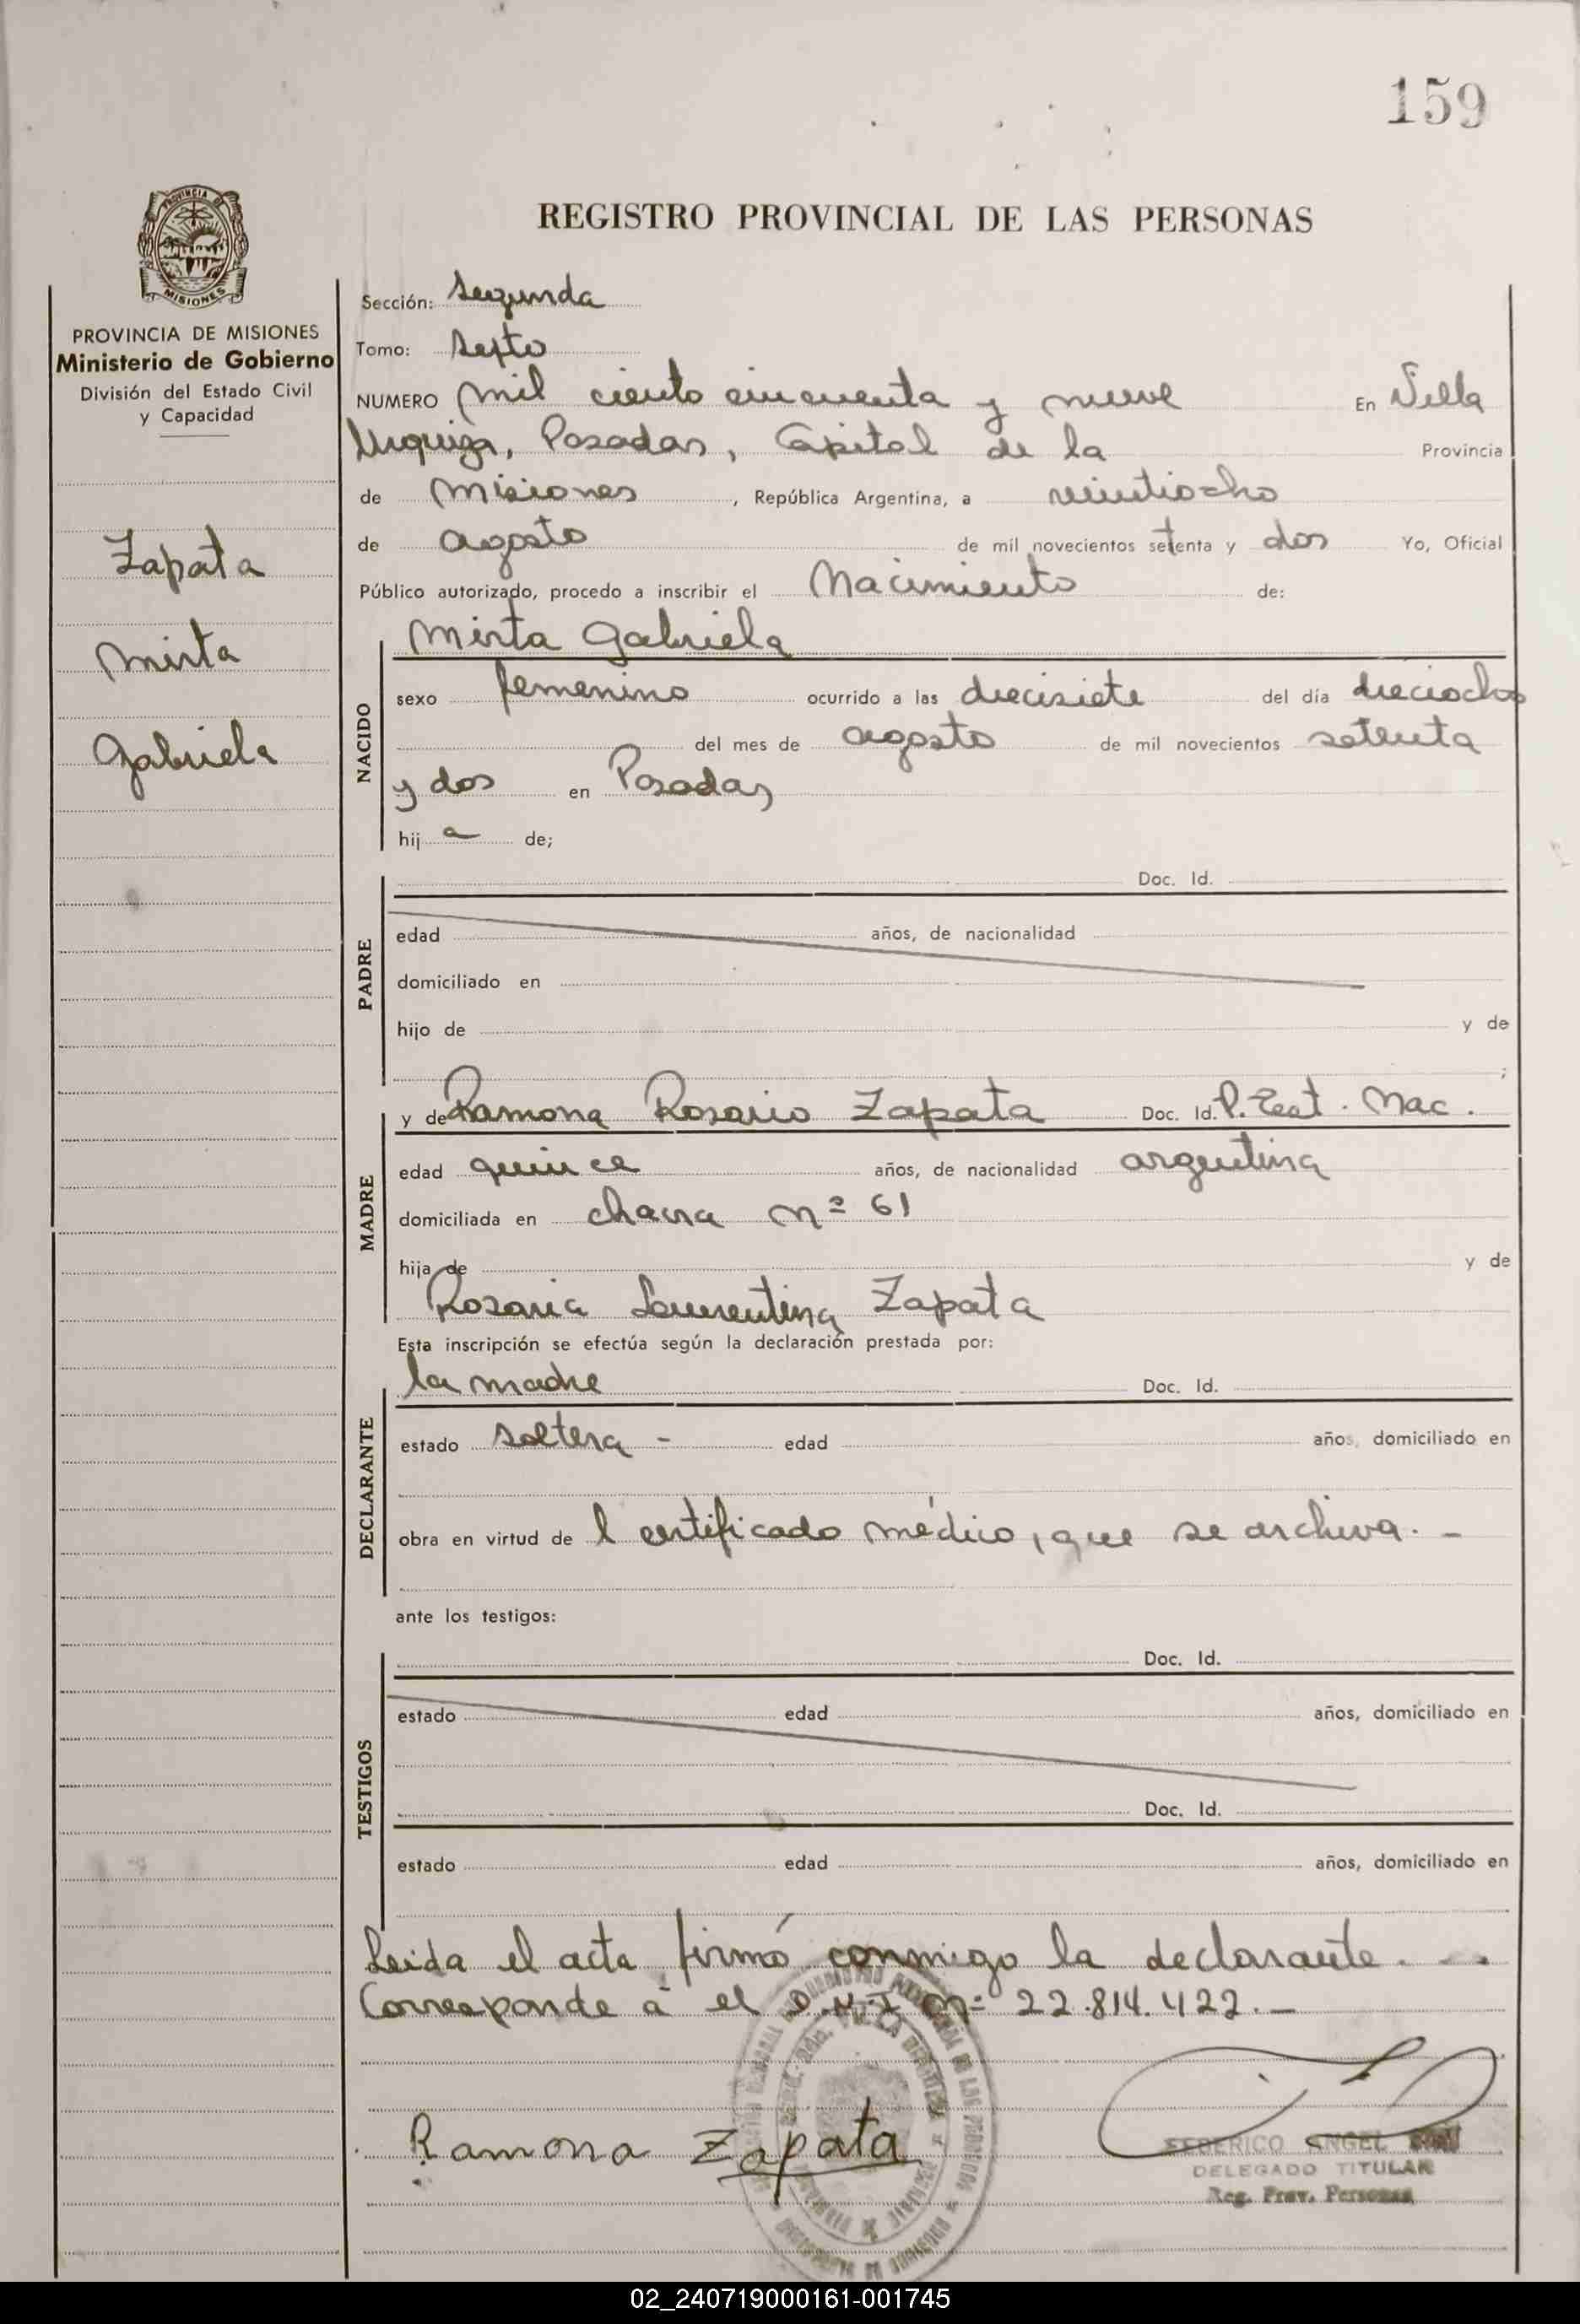 159
REGISTRO PROVINCIAL DE LAS PERSONAS
PROVINCIA DE
MISIONES
PROVINCIA DE MISIONES
Ministerio de Gobierno
División del Estado Civil
y Capacidad
Zapata
Mirta
Gabriela
Sección: Segunda
Tomo: Sexto
NUMERO mil ciento cincuenta y nueve En Villa
Urquiza, Posadas, Capital de la Provincia
de Misiones, República Argentina, a veintiocho
de agosto de mil novecientos setenta y dos Yo, Oficial
Público autorizado, procedo a inscribir el Nacimiento de:
NACIDO
Mirta Gabriela
sexo femenino ocurrido a las diecisiete del día dieciocho
del mes de agosto de mil novecientos setenta
y dos en Posadas
hij a de;
PADRE
Doc. Id.
edad años, de nacionalidad
domiciliado en
hijo de y de
;
MADRE
y de Ramona Rosario Zapata Doc. Id. P. Test. Nac.
edad quince años, de nacionalidad argentina
domiciliada en chacra Nº 61
hija de y de
Rosaria Laurentina Zapata
Esta inscripción se efectúa según la declaración prestada por:
DECLARANTE
la madre Doc. Id.
estado soltera - edad años, domiciliado en
obra en virtud de l certificado médico, que se archiva. -
ante los testigos:
TESTIGOS
Doc. Id.
estado edad años, domiciliado en
Doc. Id.
estado edad años, domiciliado en
Leida el acta firmó conmigo la declarante. - .
Corresponde á el D.N.I Nº 22.814.422. -
Ramona Zapata
FEDERICO ANGEL
DELEGADO TITULAR
Reg. Prov. Personas
02_240719000161-001745